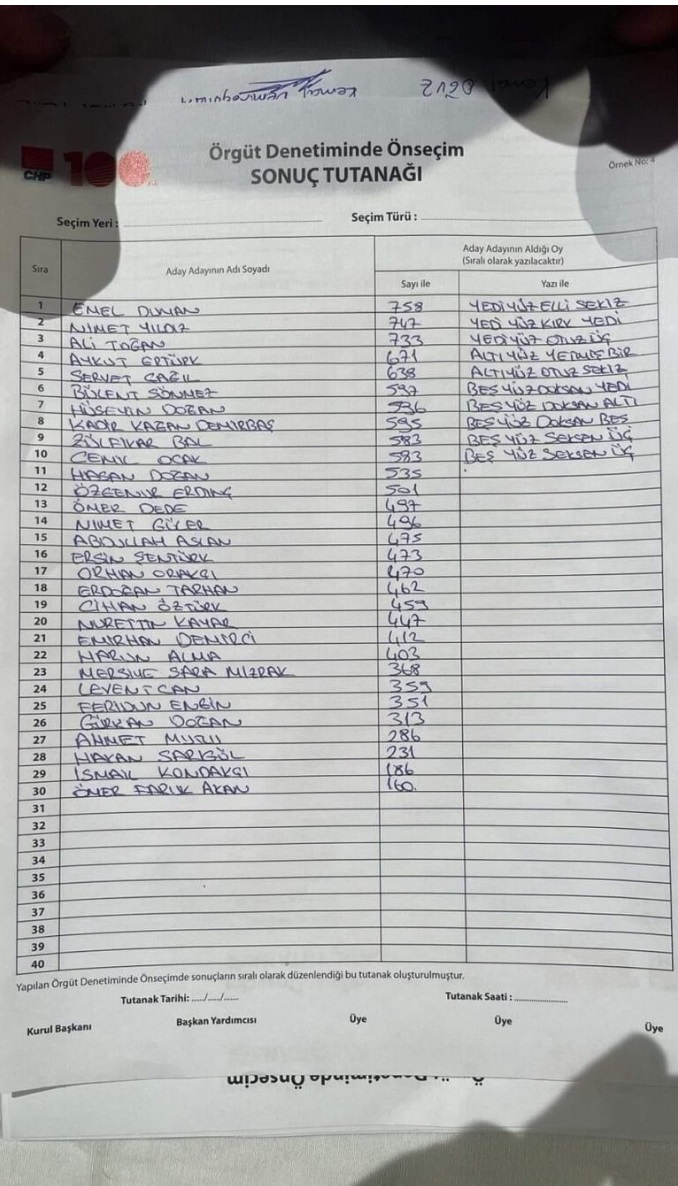 Kemal Oğuz
Kemal
CHP 100
Örgüt Denetiminde Önseçim
SONUÇ TUTANAĞI
Örnek No: 4
Seçim Yeri : Seçim Türü :
Sıra Aday Adayının Adı Soyadı Aday Adayının Aldığı Oy
(Sıralı olarak yazılacaktır)
Sayı ile Yazı ile
1 EMEL DUMAN 758 YEDİ YÜZ ELLİ SEKİZ
2 NİMET YILDIZ 747 YEDİ YÜZ KIRK YEDİ
3 ALİ TOĞAN 733 YEDİ YÜZ OTUZ ÜÇ
4 AYKUT ERTÜRK 671 ALTI YÜZ YETMİŞ BİR
5 SERVET ÇAĞIL 638 ALTI YÜZ OTUZ SEKİZ
6 BÜLENT SÖNMEZ 597 BEŞ YÜZ DOKSAN YEDİ
7 HÜSEYİN DOĞAN 596 BEŞ YÜZ DOKSAN ALTI
8 KADİR KAĞAN DEMİRBAŞ 595 BEŞ YÜZ DOKSAN BEŞ
9 ZÜLFİKAR BAL 583 BEŞ YÜZ SEKSEN ÜÇ
10 CEMİL OCAK 583 BEŞ YÜZ SEKSEN ÜÇ
11 HASAN DOĞAN 535
12 ÖZGENUR ERDİNÇ 501
13 ÖMER DEDE 497
14 NİMET GÜLER 496
15 ABDULLAH ASLAN 475
16 ERSİN ŞENTÜRK 473
17 ORHAN ORAKÇI 470
18 ERDOĞAN TARHAN 462
19 CİHAN ÖZTÜRK 459
20 NURETTİN KAYAR 447
21 EMİRHAN DEMİRCİ 412
22 HARUN ALMA 403
23 MERSİYE SARA MIZRAK 368
24 LEVENT CAN 359
25 FERİDUN ENGİN 351
26 GÜRKAN DOĞAN 313
27 AHMET MUTLU 286
28 HAKAN SARIGÜL 231
29 İSMAİL KONDAKÇI 186
30 ÖMER FARUK AKAN 160
31
32
33
34
35
36
37
38
39
40
Yapılan Örgüt Denetiminde Önseçimde sonuçların sıralı olarak düzenlendiği bu tutanak oluşturulmuştur.
Tutanak Tarihi: ...../...../...... Tutanak Saati :....................
Kurul Başkanı Başkan Yardımcısı Üye Üye Üye
Örgüt Denetiminde Önseçim